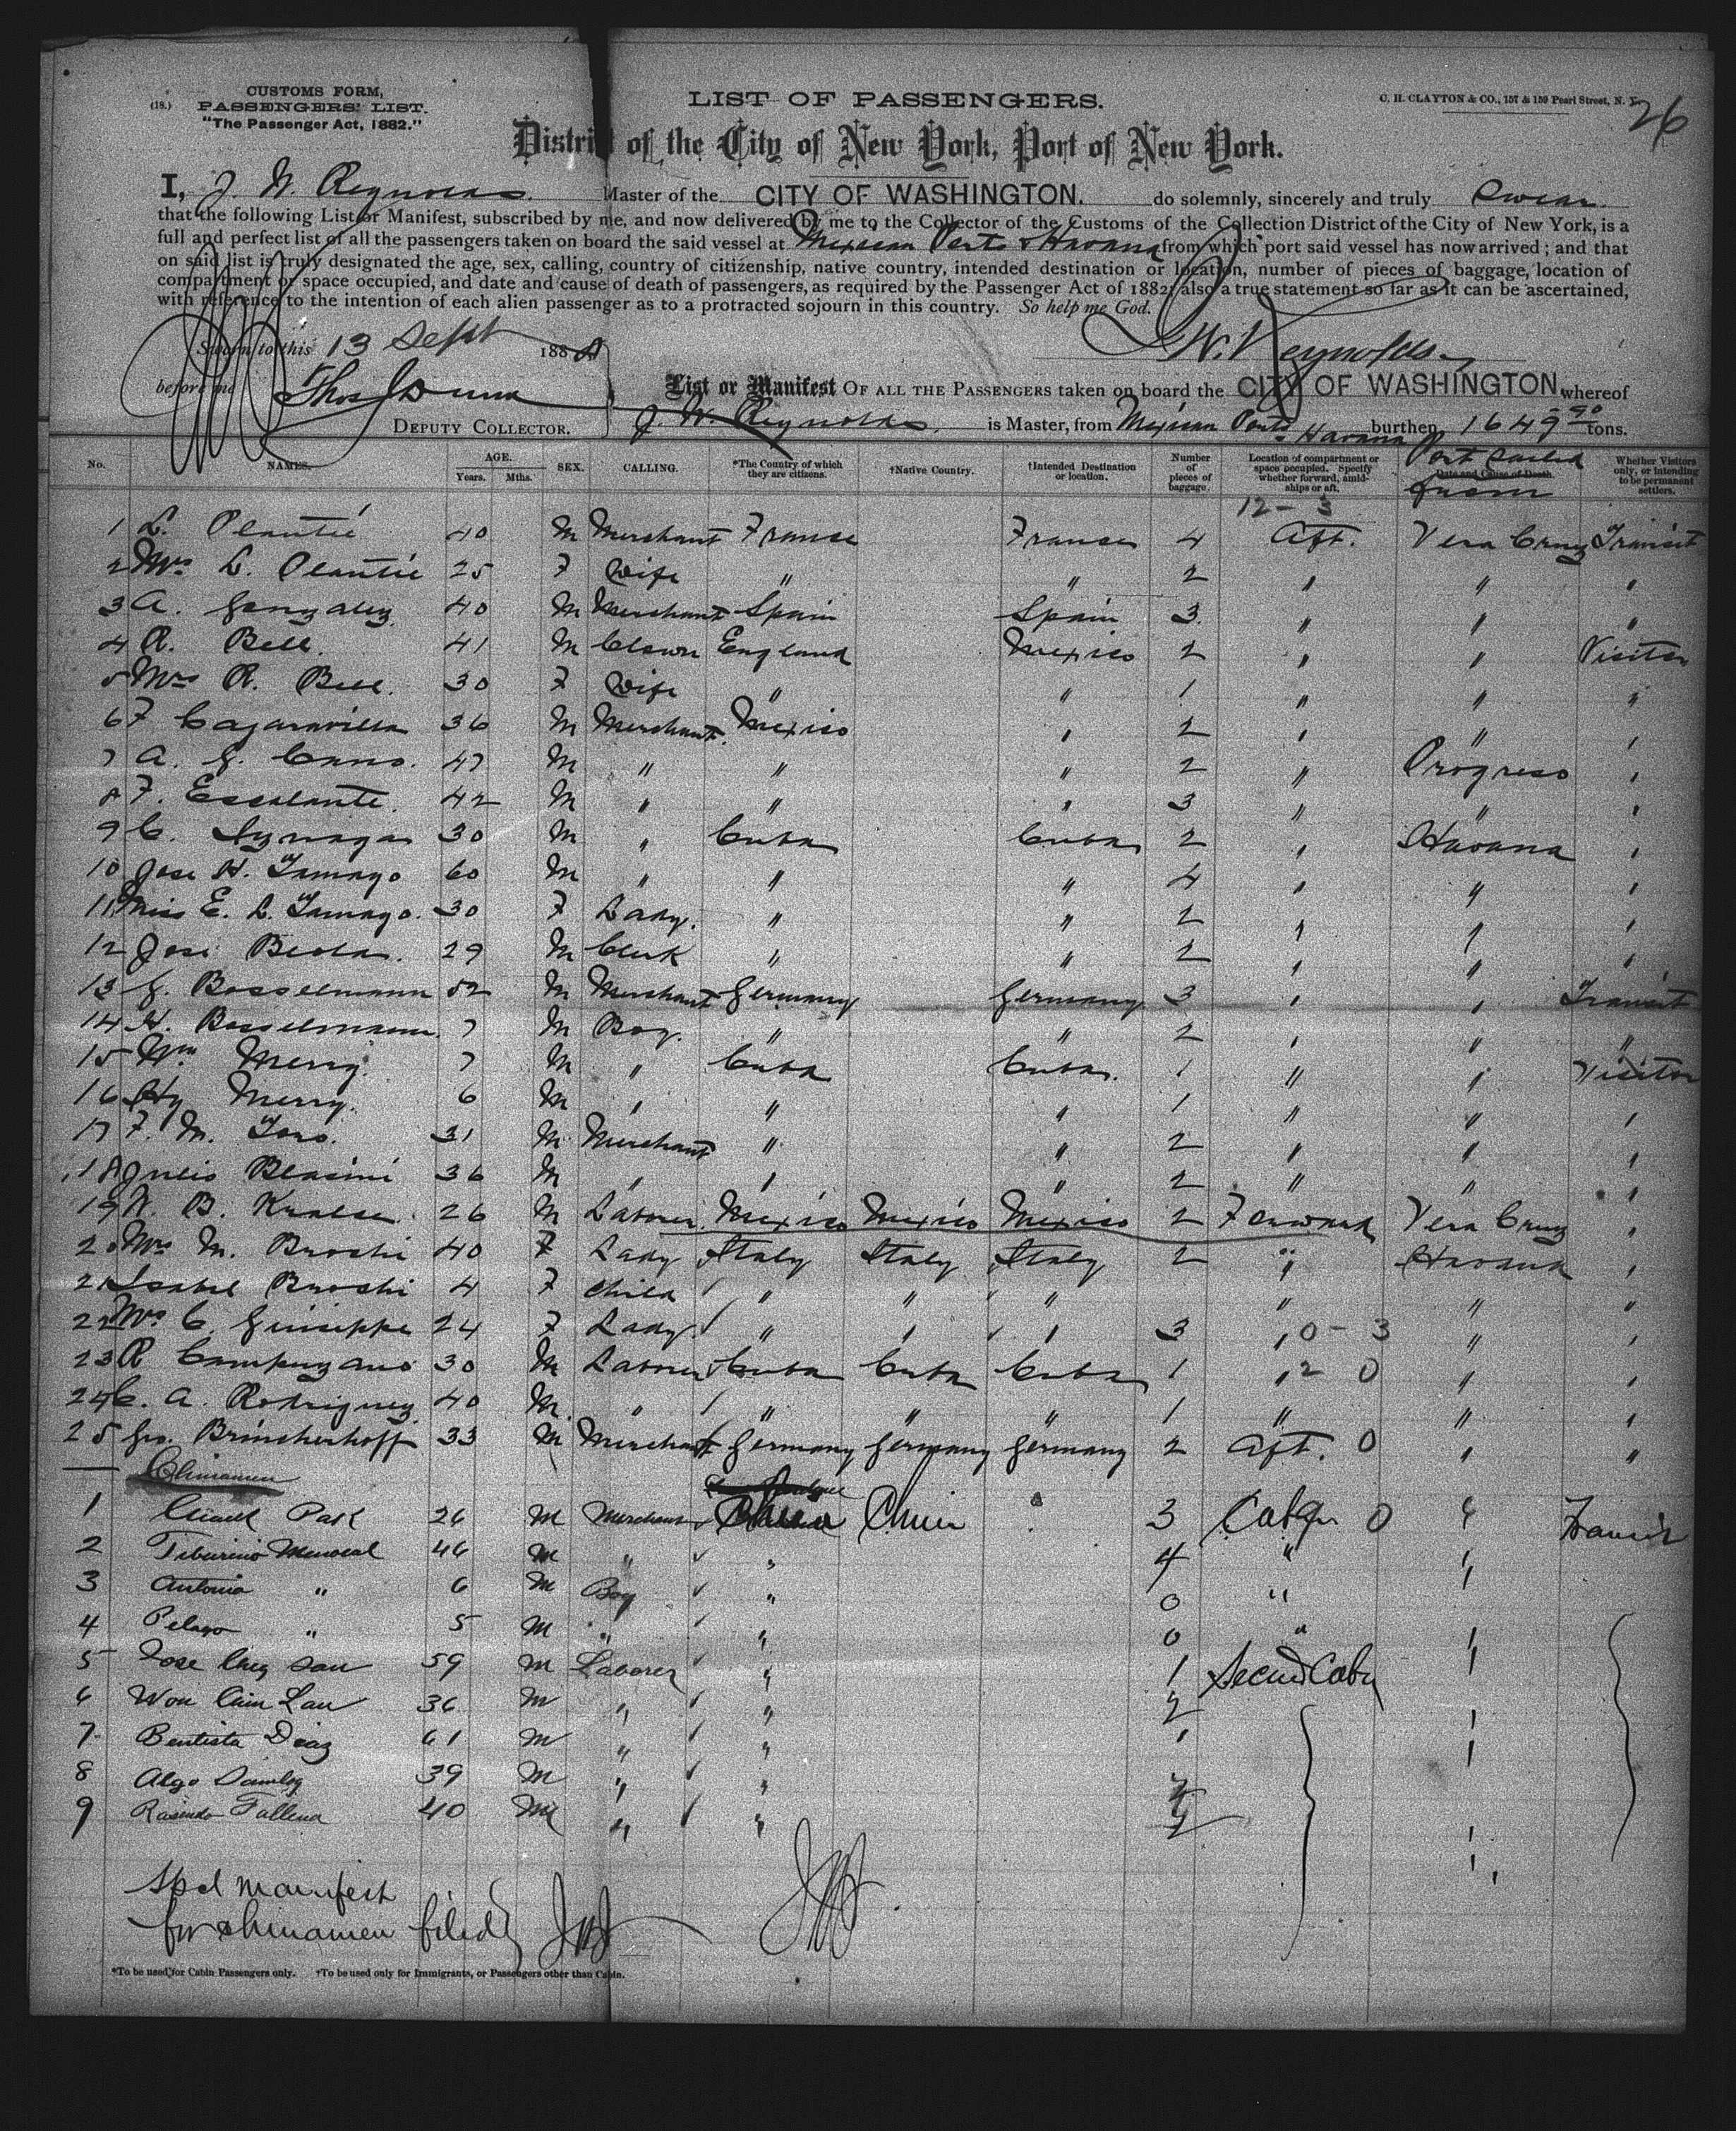 CUSTOMS FORM,
(18.) PASSENGERS' LIST.
"The Passenger Act, 1882."
LIST OF PASSENGERS.
C. H. CLAYTON & CO., 157 & 159 Pearl Street, N. Y.
26
District of the City of New York, Port of New York.
I, J. W. Reynolds. Master of the CITY OF WASHINGTON. do solemnly, sincerely and truly swear
that the following List or Manifest, subscribed by me, and now delivered by me to the Collector of the Customs of the Collection District of the City of New York, is a
full and perfect list of all the passengers taken on board the said vessel at Mexican Ports & Havana from which port said vessel has now arrived; and that
on said list is truly designated the age, sex, calling, country of citizenship, native country, intended destination or location, number of pieces of baggage, location of
compartment or space occupied, and date and cause of death of passengers, as required by the Passenger Act of 1882; also a true statement so far as it can be ascertained,
with reference to the intention of each alien passenger as to a protracted sojourn in this country. So help me God.
Sworn to this 13 Sept 188
J. W. Reynolds
before me Thos J Dunn
DEPUTY COLLECTOR.
List or Manifest OF ALL THE PASSENGERS taken on board the CITY OF WASHINGTON whereof
J. W. Reynolds, is Master, from Mexican Ports & Havana burthen 1649 90 tons.
No. NAMES. AGE. Years. Mths. SEX. CALLING. *The Country of which they are citizens. †Native Country. †Intended Destination or location. Number of pieces of baggage. Location of compartment or space occupied. Specify whether forward, amidships or aft. Date and Cause of Death Port Sailed from Whether Visitors only, or intending to be permanent settlers.
12 - 3
1 L. Plantié 40 M Merchant France France 4 Aft. Vera Cruz Transit
2 Mrs L. Plantié 25 F Wife " " 2 " " "
3 A. Gonzalez 40 M Merchant Spain Spain 3 " " "
4 R. Bell. 41 M Clown England Mexico 2 " " Visitor
5 Mrs R. Bell. 30 F Wife " " 1 " " "
6 F 36 M Merchant Mexico " 2 " " "
7 A. G. Cano. 47 M " " " 2 " Progreso "
8 F. Escalante. 42 M " " " 3 " " "
9 C. 30 M " Cuba Cuba 2 " Havana "
10 Jose H. Tamayo 60 M " " " 4 " " "
11 Miss E. L. Tamayo. 30 F Lady. " " 2 " " "
12 Jose 29 M Clerk " " 2 " " "
13 G. Bosselmann 52 M Merchant Germany Germany 3 " " Transit
14 H. Bosselmann. 7 M Boy. " " 2 " " "
15 Wm Merry. 7 M " Cuba Cuba. 1 " " Visitor
16 Hy Merry. 6 M " " " 1 " " "
17 F. M. Toro. 31 M Merchant " " 2 " " "
18 Julio Blasini 36 M " " " 2 " " "
19 W. B. 26 M Laborer. Mexico Mexico Mexico 2 Forward Vera Cruz "
20 Mrs M. Broshi 40 F Lady Italy Italy Italy 2 " Havana "
21 Isabel Broshi 4 F Child " " " " " "
22 Mrs C. Guiseppe 24 F Lady " " " 3 " 0 - 3 " "
23 R Campuzano 30 M Laborer Cuba Cuba Cuba 1 " 2 0 " "
24 C. A. Rodriguez 40 M. " " " " 1 " " "
25 Geo. Brinckerhoff 33 M Merchant Germany Germany Germany 2 Aft. 0 " "
Chinamen
1 Pak 26 M Merchant China China 3 Cabin 0 " Transit
2 46 M " " 4 " "
3 Antonio " 6 M Boy " 0 "
4 Pelayo " 5 M " " 0 " "
5 Jose 59 M Laborer " 1 Second Cabin "
6 Won Lau 36 M " " 2 "
7 Bentista Diaz 61 M " " 1 "
8 Algo 39 M " " 2
9 Rosendo Fallena 40 M " " 2 "
Spcl manifest
for chinamen filed
*To be used for Cabin Passengers only. †To be used only for Immigrants, or Passengers other than Cabin.